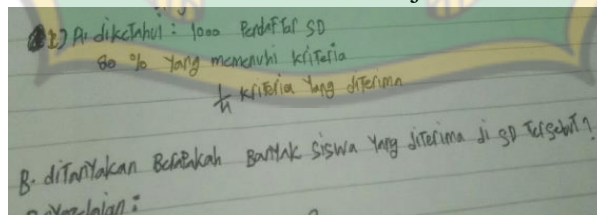 1) A. diketahui : 1000 Pendaftar SD
80 % yang memenuhi kriteria
1/4 kriteria yang diterima
B. diTanyakan Berapakah Banyak siswa yang diterima di SD Tersebut?